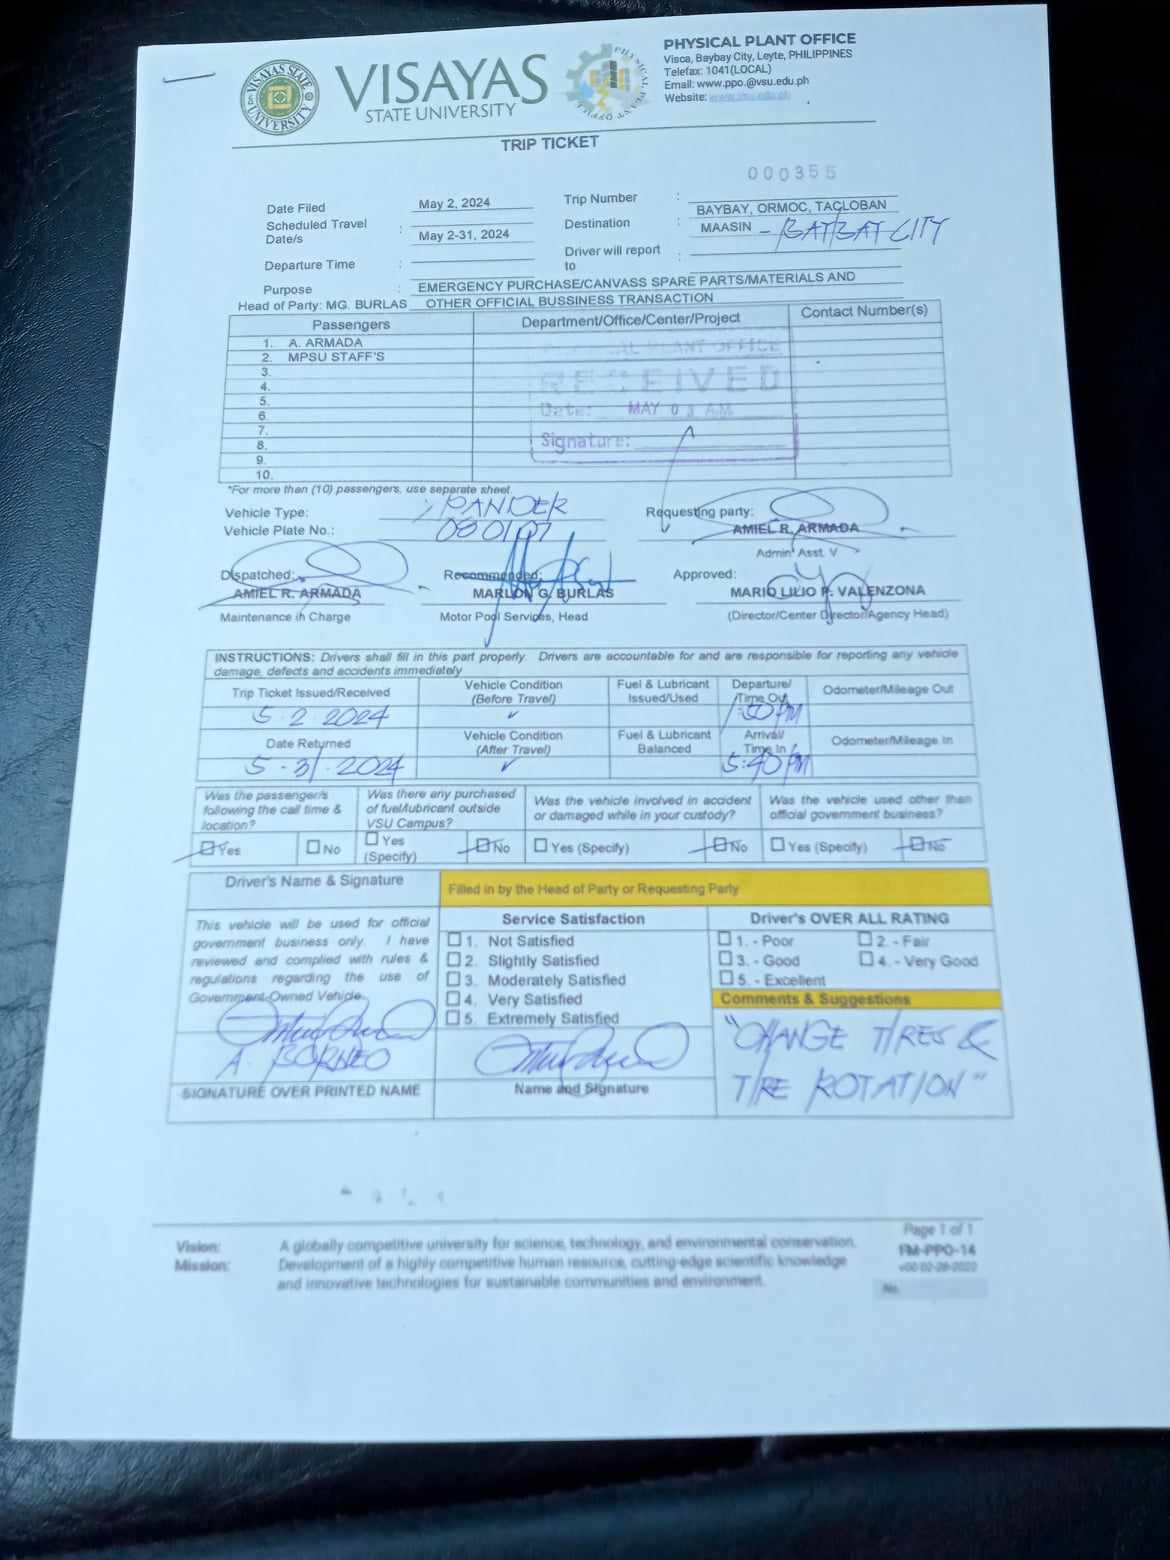 VISAYAS STATE UNIVERSITY
VISAYAS
STATE UNIVERSITY
PHYSICAL PLANT OFFICE
PHYSICAL PLANT OFFICE
Visca, Baybay City, Leyte, PHILIPPINES
Telefax: 1041(LOCAL)
Email: www.ppo.@vsu.edu.ph
Website: www.vsu.edu.ph
TRIP TICKET
000355
Date Filed May 2, 2024 Trip Number :
Scheduled Travel Date/s : May 2-31, 2024 Destination : BAYBAY, ORMOC, TACLOBAN
MAASIN - BAYBAY CITY
Departure Time : Driver will report to :
Purpose : EMERGENCY PURCHASE/CANVASS SPARE PARTS/MATERIALS AND
Head of Party: MG. BURLAS OTHER OFFICIAL BUSSINESS TRANSACTION
Passengers Department/Office/Center/Project Contact Number(s)
1. A. ARMADA
2. MPSU STAFF'S
3.
4.
5.
6.
7.
8.
9.
10.
PLANT OFFICE
RECEIVED
Date: MAY 03 AM
Signature:
*For more than (10) passengers, use separate sheet.
Vehicle Type: XPANDER Requesting party:
Vehicle Plate No.: AMIEL R. ARMADA
Admin. Asst. V
Dispatched: Recommended: Approved:
AMIEL R. ARMADA MARLON G. BURLAS MARIO LILIO P. VALENZONA
Maintenance in Charge Motor Pool Services, Head (Director/Center Director/Agency Head)
INSTRUCTIONS: Drivers shall fill in this part properly. Drivers are accountable for and are responsible for reporting any vehicle
damage, defects and accidents immediately
Trip Ticket Issued/Received Vehicle Condition (Before Travel) Fuel & Lubricant Issued/Used Departure/ /Time Out Odometer/Mileage Out
5 . 2 . 2024 ✓ 1:30 PM
Date Returned Vehicle Condition (After Travel) Fuel & Lubricant Balanced Arrival/ Time In / Odometer/Mileage In
5 . 31 . 2024 ✓ 5:40 PM
Was the passenger/s following the call time & location? Was there any purchased of fuel/lubricant outside VSU Campus? Was the vehicle involved in accident or damaged while in your custody? Was the vehicle used other than official government business?
☐ Yes ☐ No ☐ Yes (Specify) ☐ No ☐ Yes (Specify) ☐ No ☐ Yes (Specify) ☐ No
Driver's Name & Signature Filled in by the Head of Party or Requesting Party
This vehicle will be used for official
government business only. I have
reviewed and complied with rules &
regulations regarding the use of
Government-Owned Vehicle.
A. BORNEO
SIGNATURE OVER PRINTED NAME
Service Satisfaction
☐ 1. Not Satisfied
☐ 2. Slightly Satisfied
☐ 3. Moderately Satisfied
☐ 4. Very Satisfied
☐ 5. Extremely Satisfied
Name and Signature
Driver's OVER ALL RATING
☐ 1. - Poor ☐ 2. - Fair
☐ 3. - Good ☐ 4. - Very Good
☐ 5. - Excellent
Comments & Suggestions
"CHANGE TIRES &
TIRE ROTATION"
Vision: A globally competitive university for science, technology, and environmental conservation.
Mission: Development of a highly competitive human resource, cutting-edge scientific knowledge
and innovative technologies for sustainable communities and environment.
Page 1 of 1
FM-PPO-14
v00 02-28-2022
No.